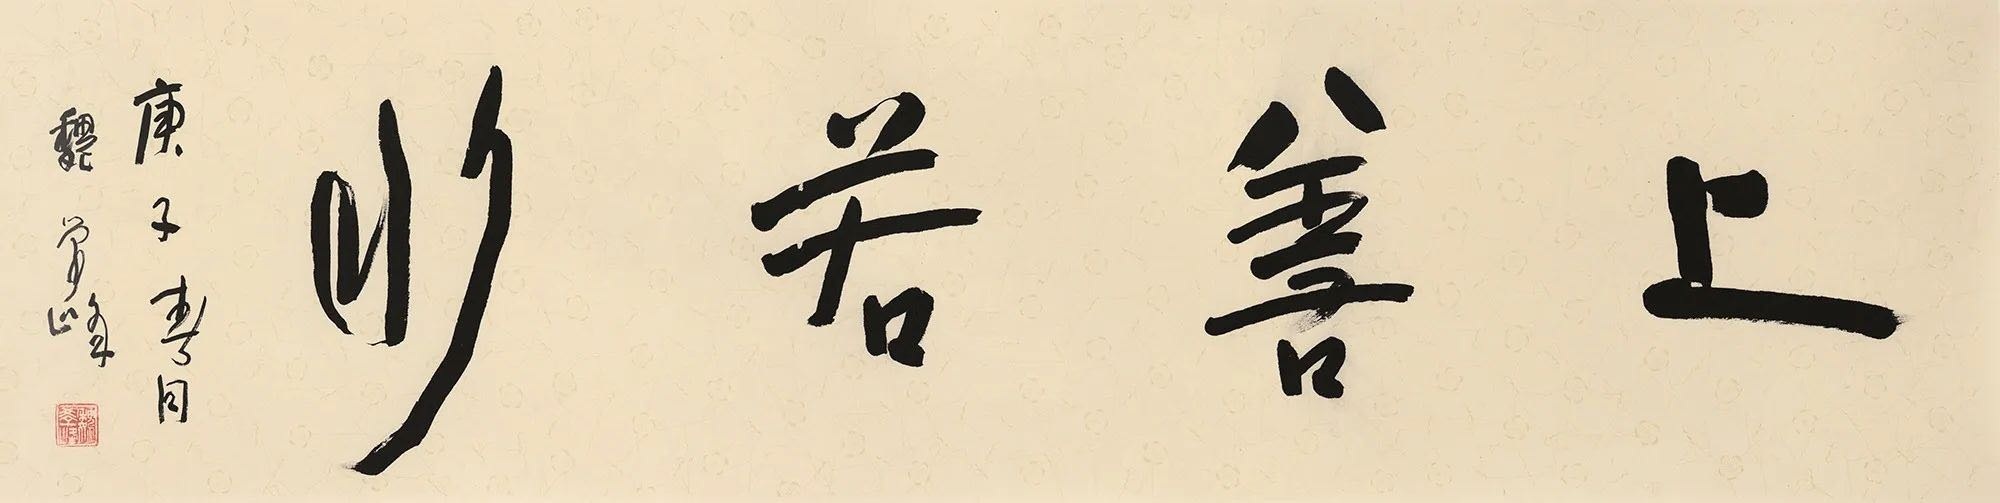 上善若水
庚子春月
魏学峰